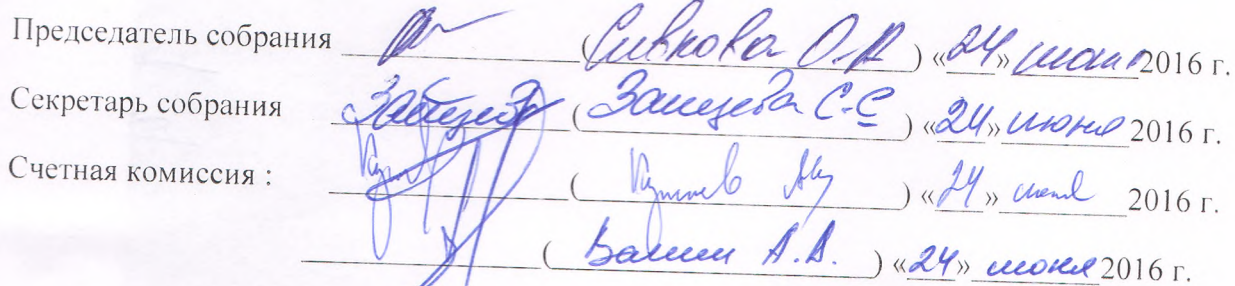 Председатель собрания (Сивкова О.А.) «24» июня 2016 г.
Секретарь собрания (Зайцева С.С) «24» июня 2016 г.
Счетная комиссия : ( ) «24» июня 2016 г.
( А.А. ) «24» июня 2016 г.